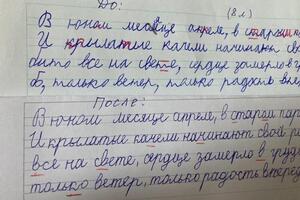 До:
(8 л)
В юном месяце апреле, в старом
И крылатые качели начинают
было все на свете, сердце замерло в
б, только ветер, только радость
После:
В юном месяце апреле, в старом пар
И крылатые качели начинают свой р
всё на свете, сердце замерло в груд
только ветер, только радость вперед